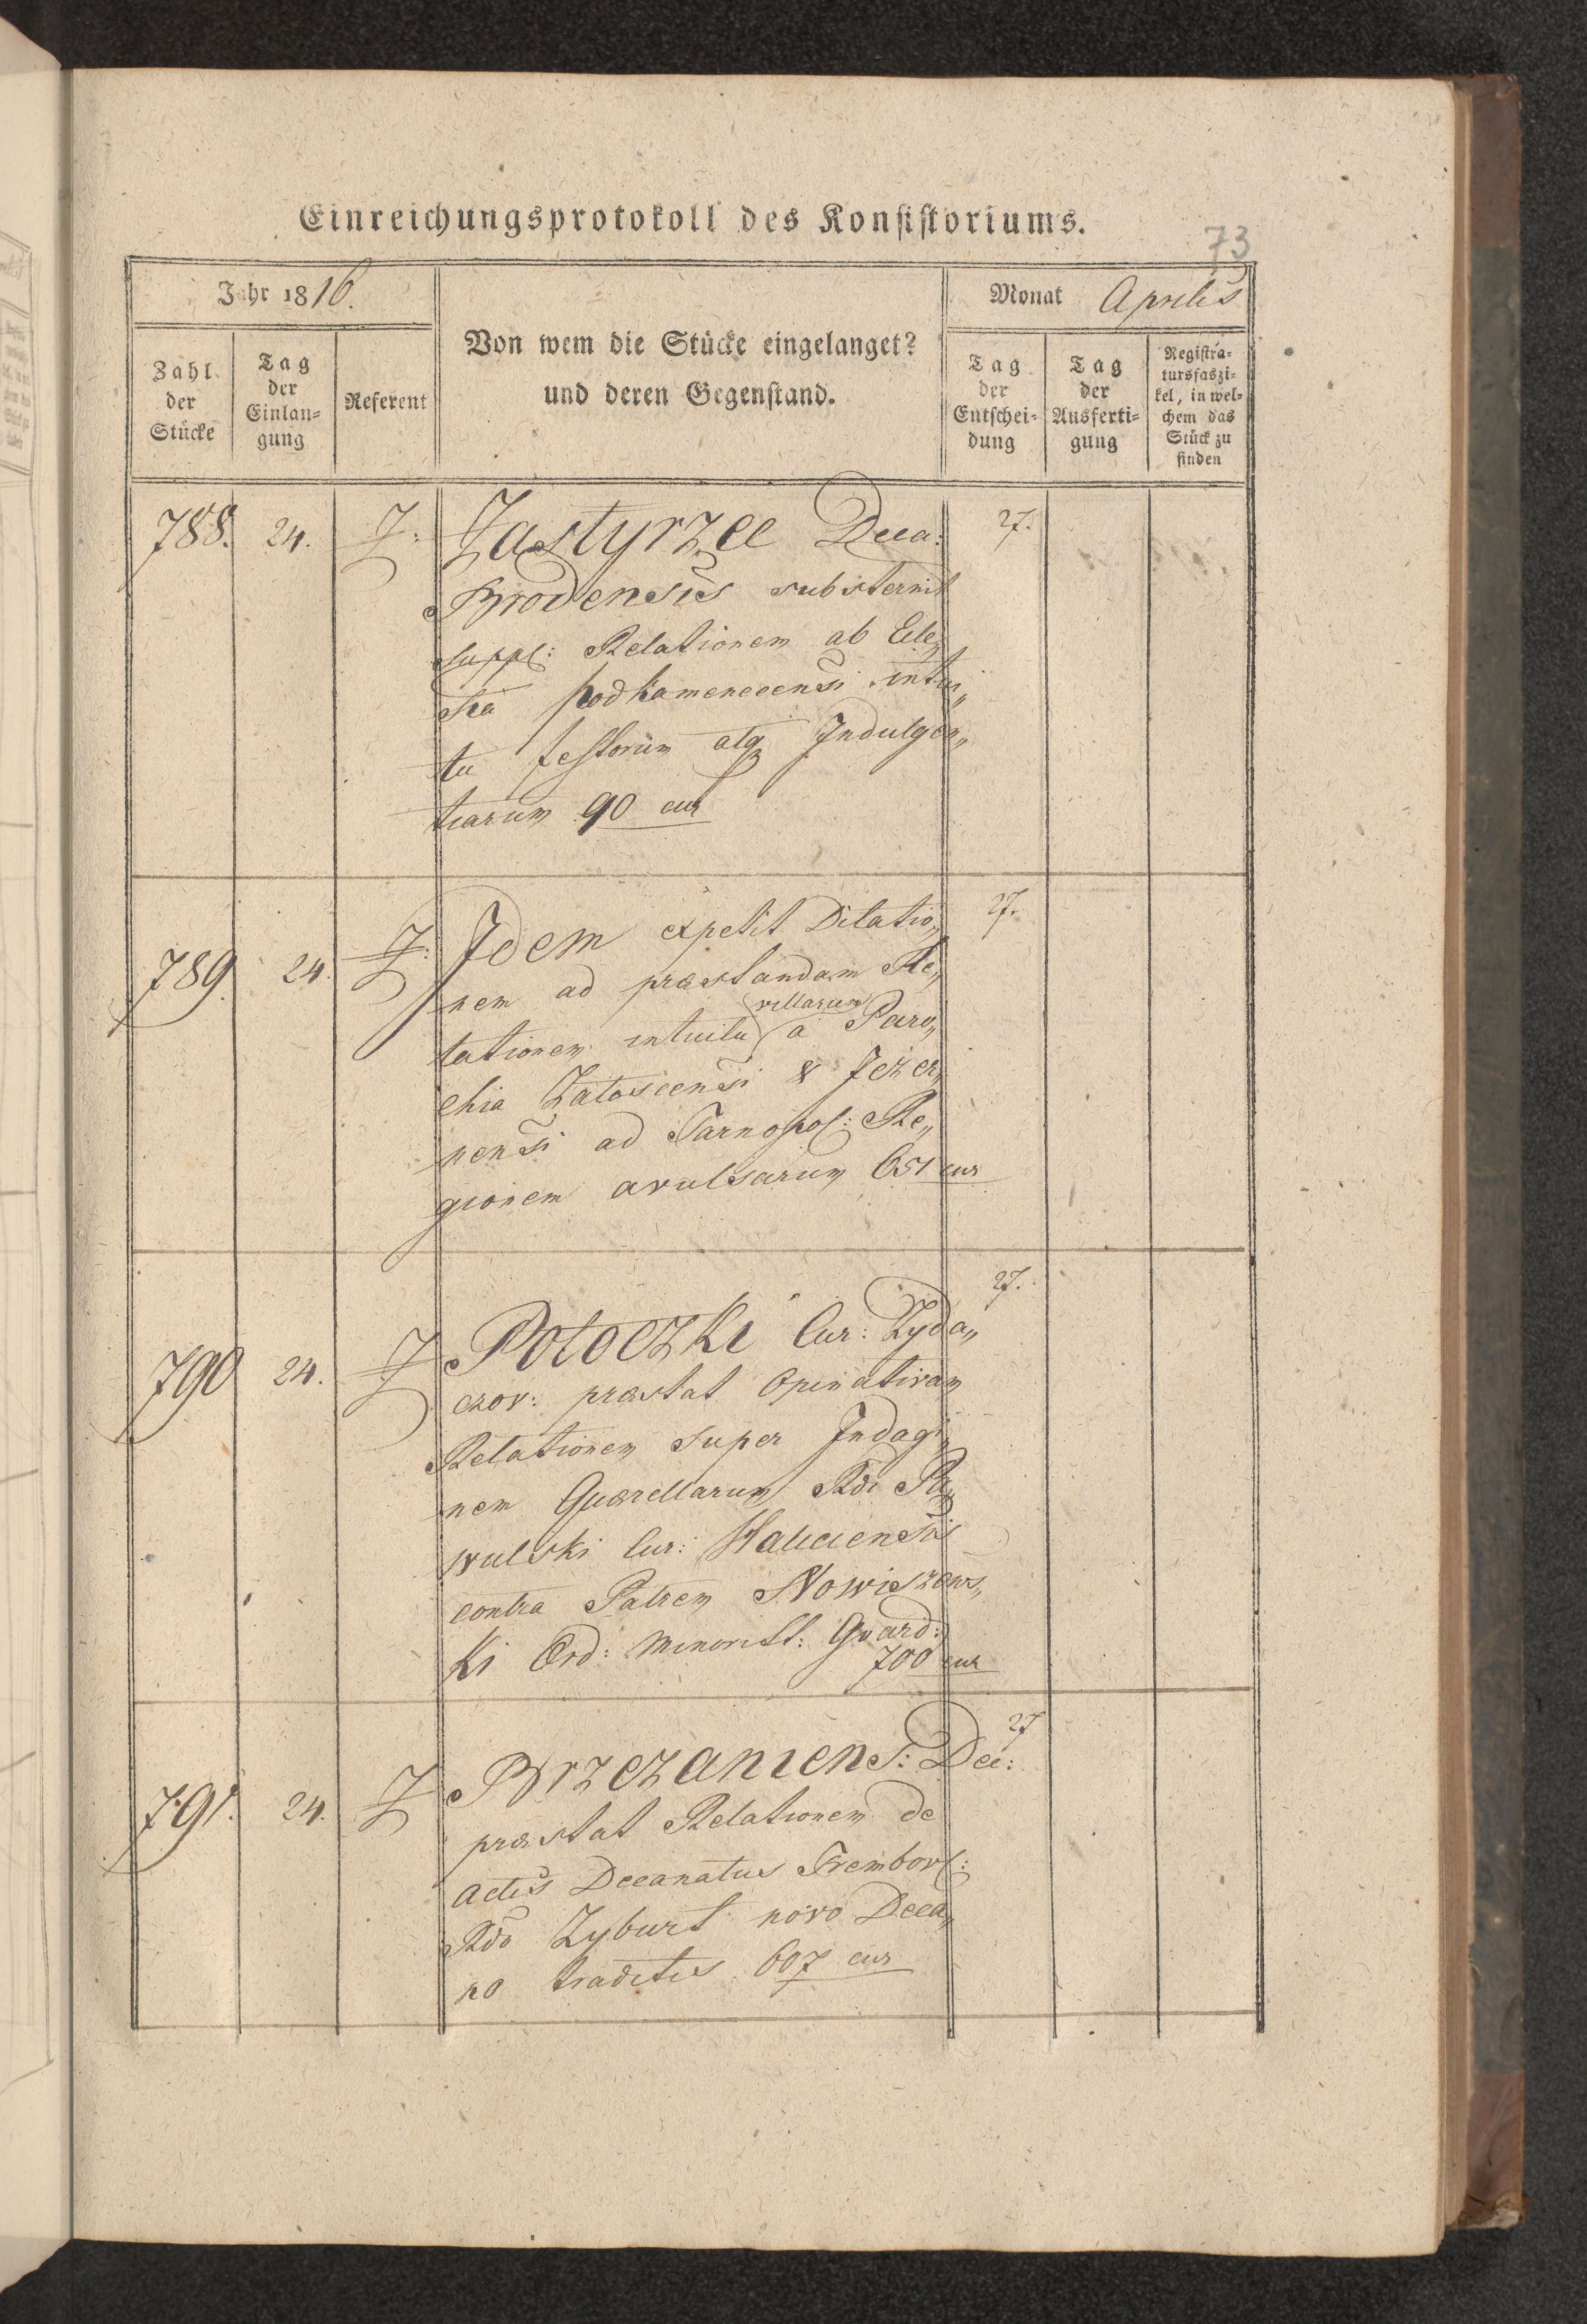 Einreichungsprotokoll des Konsistoriums.
73
Jahr 1816.
Von wem die Stücke eingelanget?
und deren Gegenstand.
Monat Aprilis
Zahl der Stücke
Tag der Einlan=gung
Referent
Tag der Entschei=dung
Tag der Ausferti=gung
Registra=tursfaszi=kel, in wel=chem das Stück zu finden
788. 24. Z: Zastyrzec Deca: 27.
Brodensis substernit
suppl: Relationem ab Eccle„
sia podkamenecensi intui„
tu festorum atq Indulgen„
tiarum 90 cur
789. 24. Z: Idem expetit Dilatio„ 27.
nem ad præstandam Re„
villarum
lationem intuitu a Paro„
chia Zaloscensi & Jezer„
nensi ad Tarnopol: Re„
gionem avulsarum 651 cur
27.
790 24. Z Potoczki Cur: Zyda„
czov: præstat Opinativam
Relationem super Indagi„
nem Quærellarum Rdi Pa„
wulski Cur: Haliciensis
contra Patrem Nowiszews„
ki Ord: Minorit: Guard:
700 cur
27
791. 24. Z Brzezaniens: Dec:
præstat Relationem de
actis Decanatus Trembovl:
Rdo Zyburt novo Deca„
no traditis 607 cur